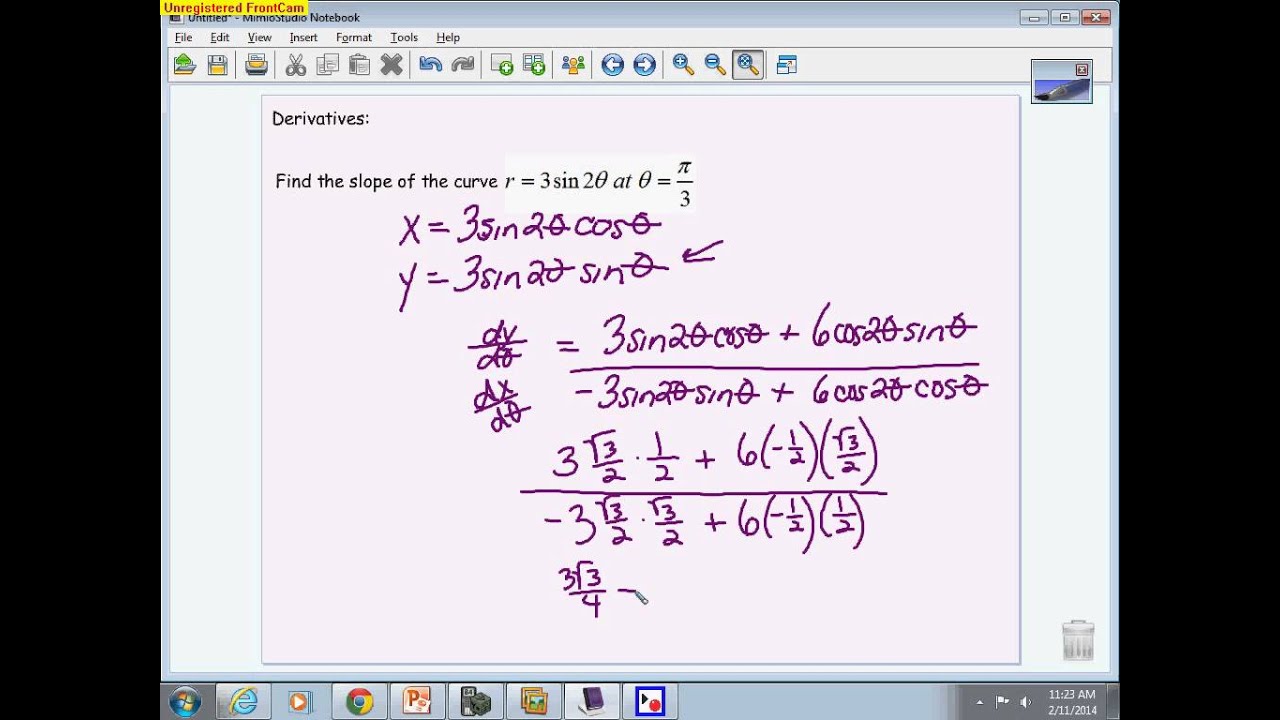 Unregistered FrontCam
Untitled* - MimioStudio Notebook
File Edit View Insert Format Tools Help
Derivatives:
Find the slope of the curve r = 3 sin 2θ at θ = π/3
x = 3sin2θ cosθ
y = 3sin2θ sinθ
dy/dθ / dx/dθ = (3sin2θcosθ + 6cos2θsinθ) / (-3sin2θsinθ + 6cos2θcosθ)
(3 √3/2 · 1/2 + 6(-1/2)(√3/2)) / (-3 √3/2 · √3/2 + 6(-1/2)(1/2))
3√3/4 -
11:23 AM
2/11/2014